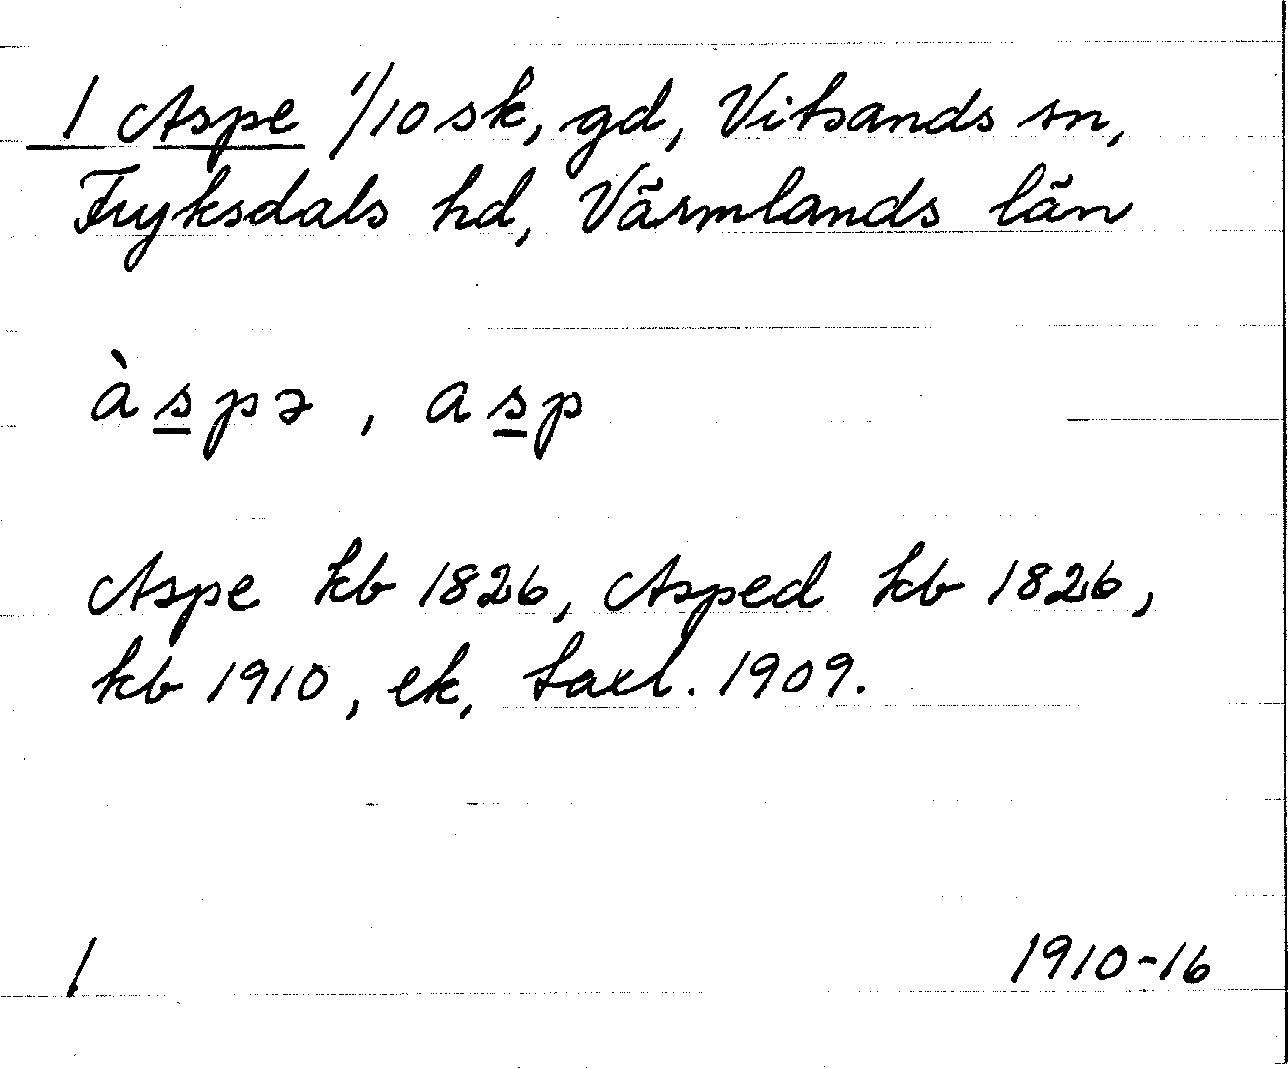 1 Aspe 1/10 sk, gd, Vitsands sn,
Fryksdals hd, Värmlands län
às̲pə, as̲p
Aspe kb 1826, Asped kb 1826,
kb 1910, ek, Saxl. 1909.
1 1910-16